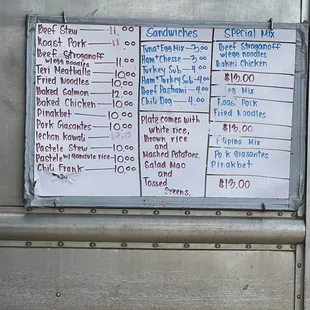 Beef Stew 11.00
Roast Pork 11
Beef Stroganoff
w/egg noodles 11.00
Teri Meatballs 10.00
Fried Noodles 10.00
Baked Salmon 12.00
Baked Chicken 10.00
Pinakbet 10.00
Pork Gisantes 10.00
lechon Kawali
Pastele Stew 10.00
Pastele w/gandule rice 10.00
Chili Frank 10.00
Sandwiches
Tuna + Egg Mix 3.00
Ham + Chesse 3.00
Turkey Sub 4.00
Ham + Turkey Sub 4.00
Beef Pastrami 4.00
Chili Dog 4.00
Plate comes with
white rice,
Brown rice
and
Mashed Potatoes
Salad Mac
and
Tossed
Greens
Special Mix
Beef Stroganoff
w/egg noodles
Baked Chicken
Mix
Roast Pork
Fried Noodles
$13.00
Filipino Mix
Pork Gisantes
Pinakbet
$13.00